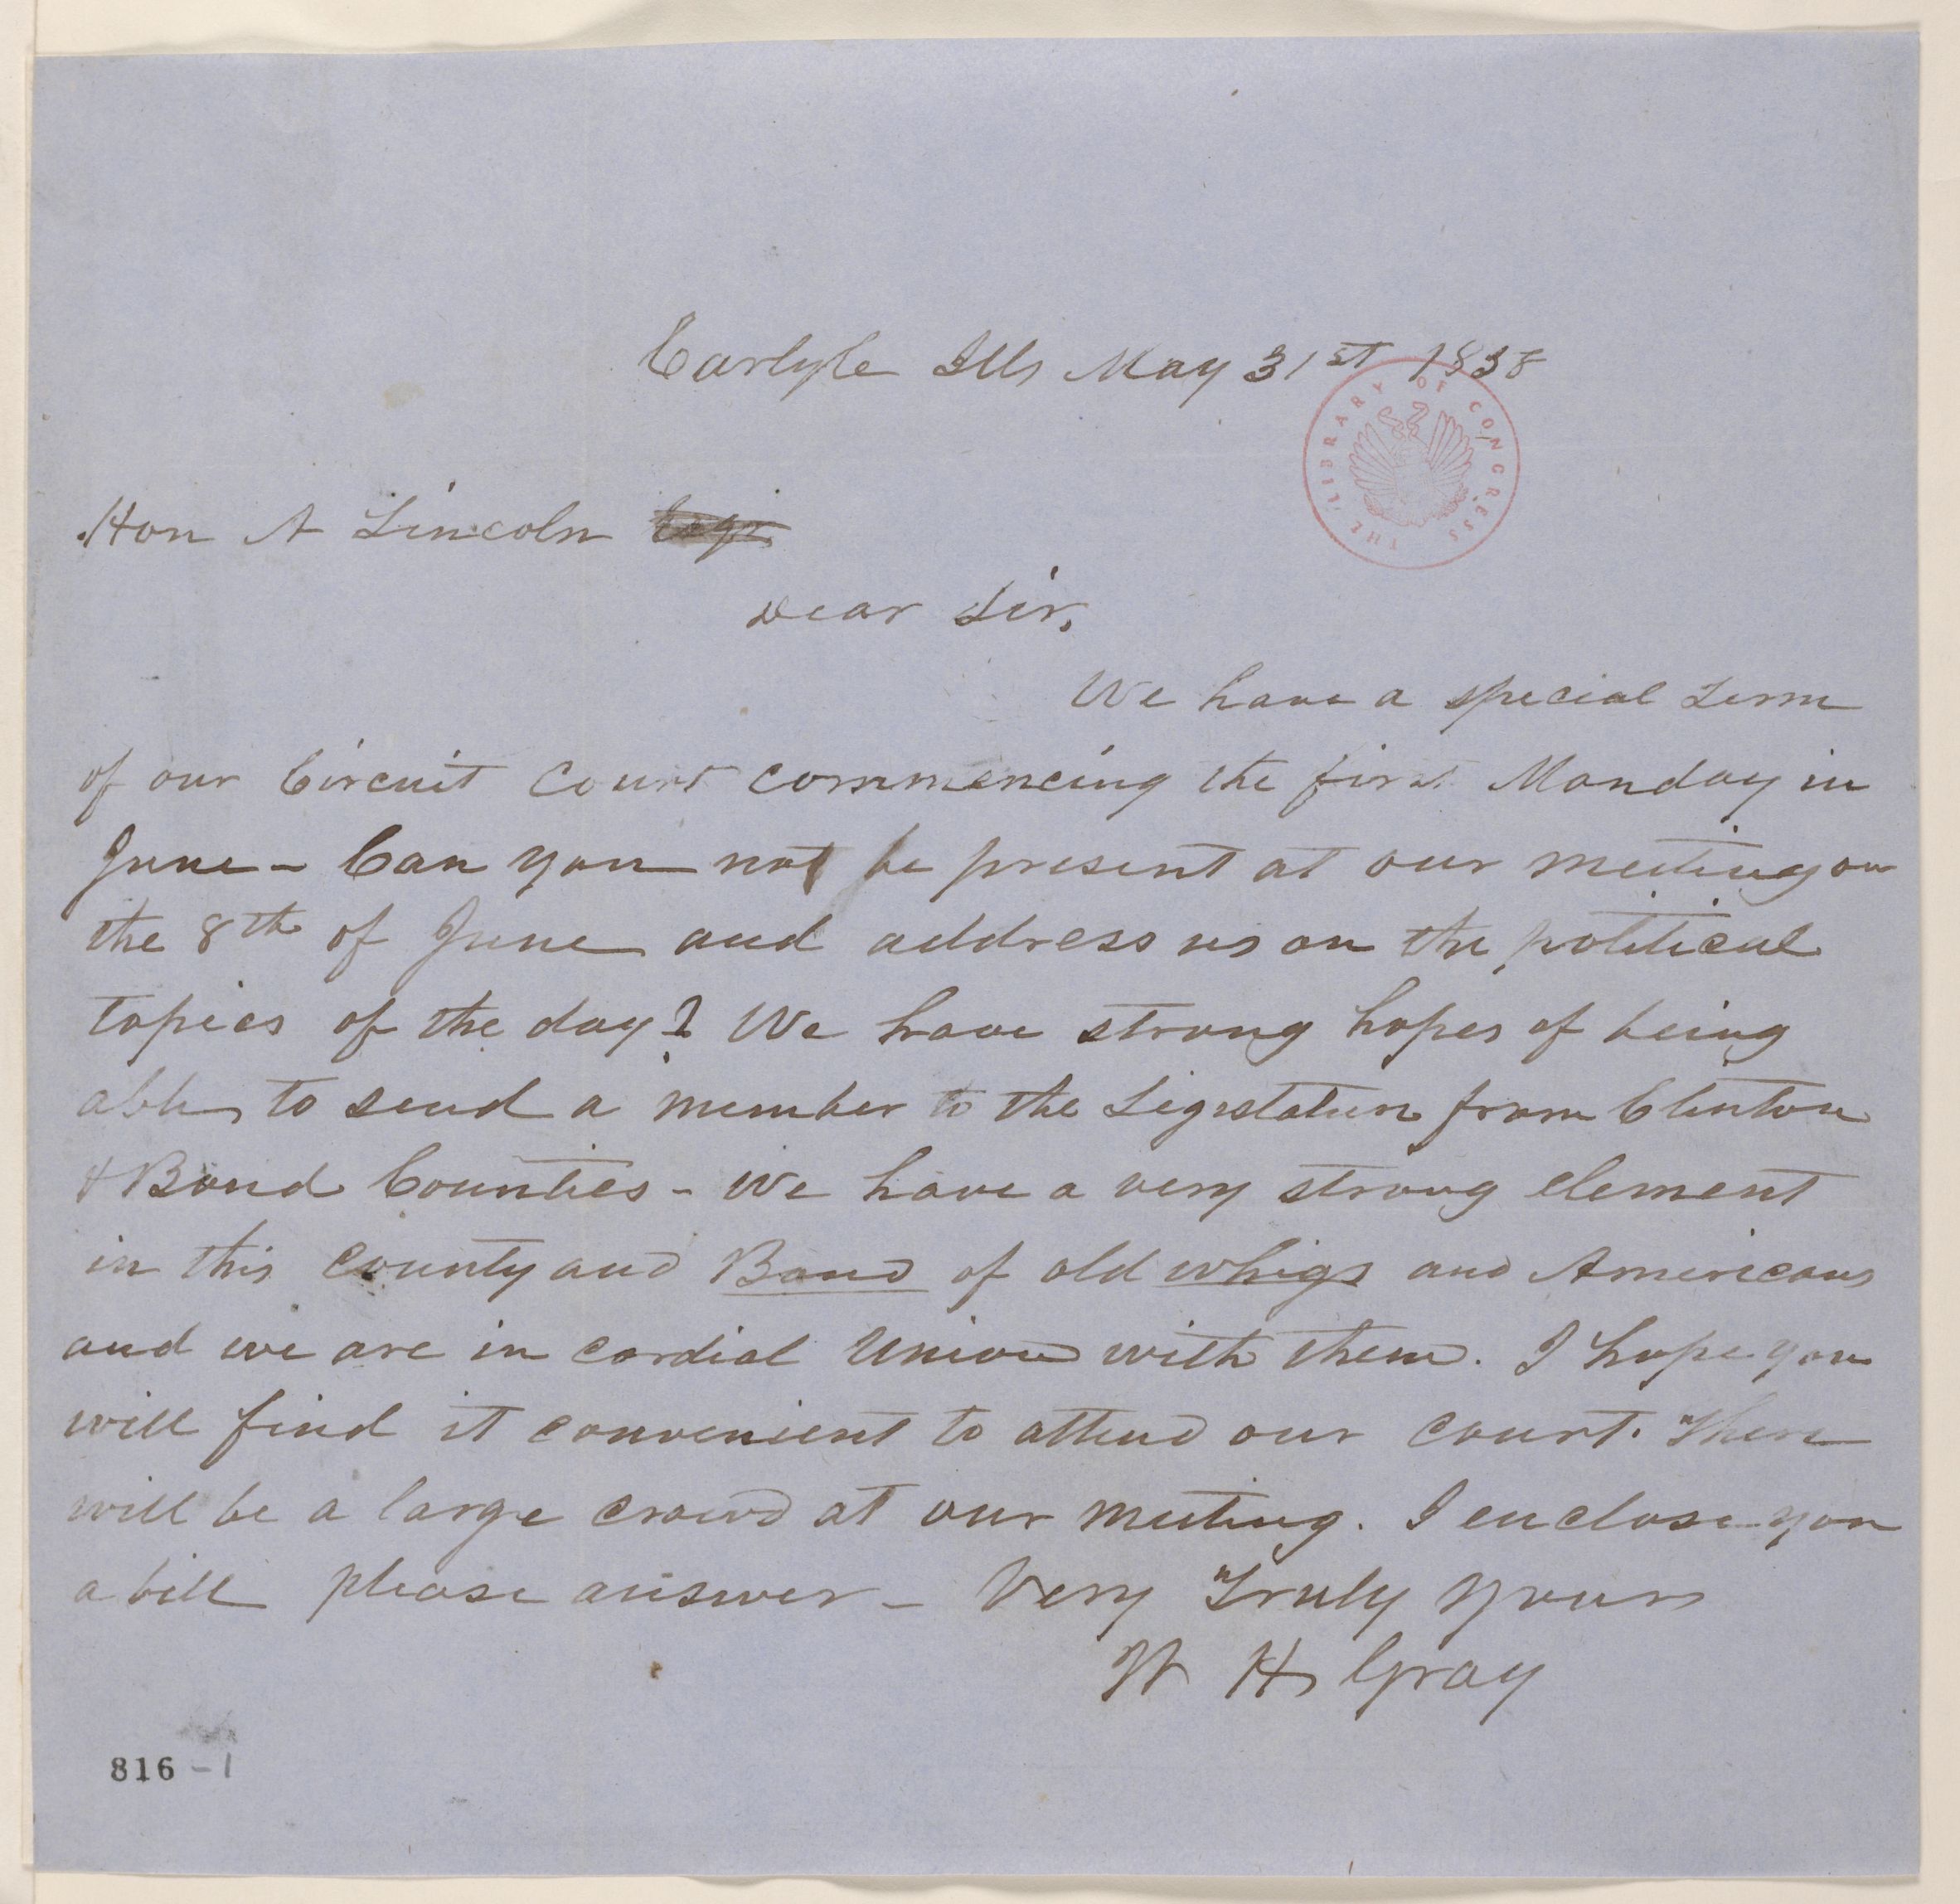 Carlyle Ills May 31st 1858
THE LIBRARY OF CONGRESS
Hon A Lincoln Esqr
Dear Sir,
We have a special term
of our Circuit Court commencing the first Monday in
June - Can you not be present at our meeting on
the 8th of June and address us on the political
topics of the day? We have strong hopes of being
able to send a member to the Legislature from Clinton
& Bond Counties - We have a very strong element
in this County and Bond of old whigs and Americans
and we are in cordial Union with them. I hope you
will find it convenient to attend our court. There
will be a large crowd at our meeting. I enclose you
a bill please answer - Very Truly yours
W H Gray
816-1